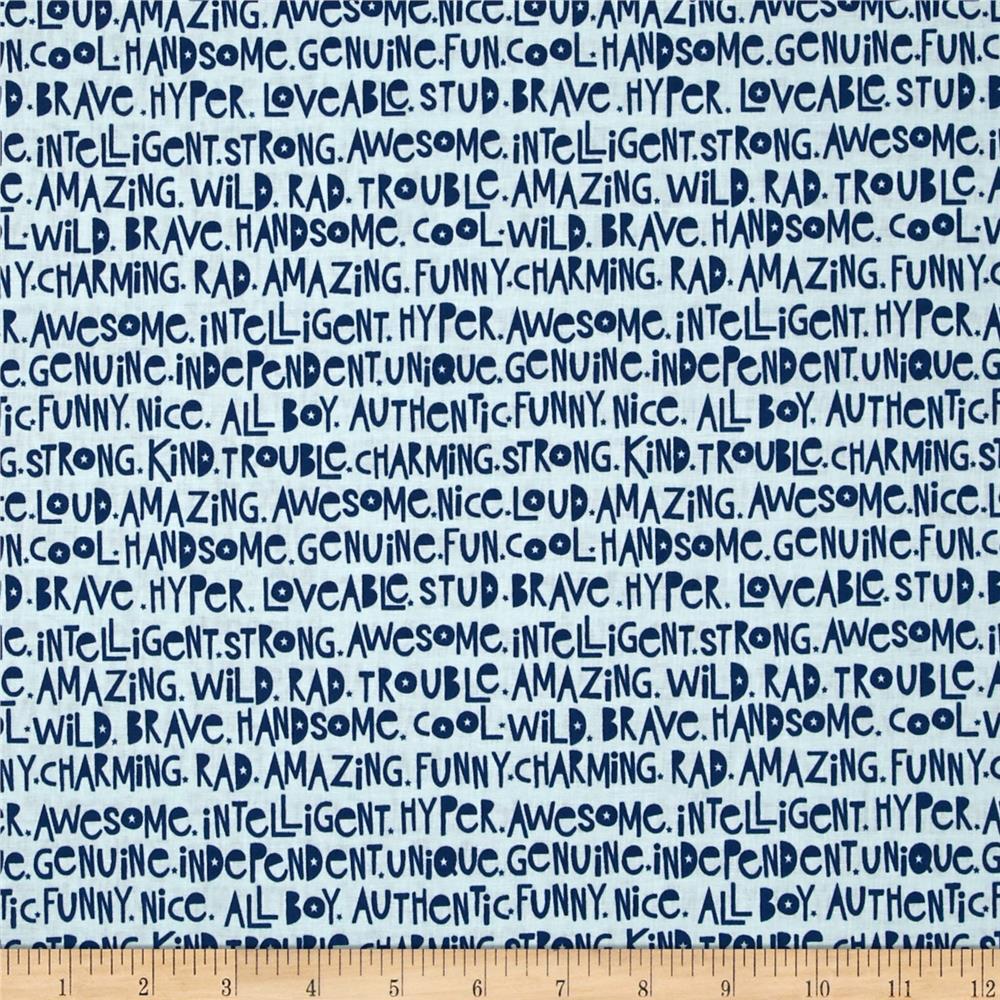 LOUD. AMAZING. AWESOME. NICE. LOUD. AMAZING. AWESOME. NICE.
COOL. HANDSOME. GENUINE. FUN. COOL. HANDSOME. GENUINE. FUN.
BRAVE. HYPER. LOVEABLE. STUD. BRAVE. HYPER. LOVEABLE. STUD.
INTELLIGENT. STRONG. AWESOME. INTELLIGENT. STRONG. AWESOME.
AMAZING. WILD. RAD. TROUBLE. AMAZING. WILD. RAD. TROUBLE.
WILD. BRAVE. HANDSOME. COOL. WILD. BRAVE. HANDSOME. COOL.
CHARMING. RAD. AMAZING. FUNNY. CHARMING. RAD. AMAZING. FUNNY.
AWESOME. INTELLIGENT. HYPER. AWESOME. INTELLIGENT. HYPER.
GENUINE. INDEPENDENT. UNIQUE. GENUINE. INDEPENDENT. UNIQUE.
FUNNY. NICE. ALL BOY. AUTHENTIC. FUNNY. NICE. ALL BOY. AUTHENTIC.
STRONG. KIND. TROUBLE. CHARMING. STRONG. KIND. TROUBLE. CHARMING.
LOUD. AMAZING. AWESOME. NICE. LOUD. AMAZING. AWESOME. NICE.
COOL. HANDSOME. GENUINE. FUN. COOL. HANDSOME. GENUINE. FUN.
BRAVE. HYPER. LOVEABLE. STUD. BRAVE. HYPER. LOVEABLE. STUD.
INTELLIGENT. STRONG. AWESOME. INTELLIGENT. STRONG. AWESOME.
AMAZING. WILD. RAD. TROUBLE. AMAZING. WILD. RAD. TROUBLE.
WILD. BRAVE. HANDSOME. COOL. WILD. BRAVE. HANDSOME. COOL.
CHARMING. RAD. AMAZING. FUNNY. CHARMING. RAD. AMAZING. FUNNY.
AWESOME. INTELLIGENT. HYPER. AWESOME. INTELLIGENT. HYPER.
GENUINE. INDEPENDENT. UNIQUE. GENUINE. INDEPENDENT. UNIQUE.
FUNNY. NICE. ALL BOY. AUTHENTIC. FUNNY. NICE. ALL BOY. AUTHENTIC.
STRONG. KIND. TROUBLE. CHARMING. STRONG. KIND. TROUBLE. CHARMING.
1 2 3 4 5 6 7 8 9 10 11 12